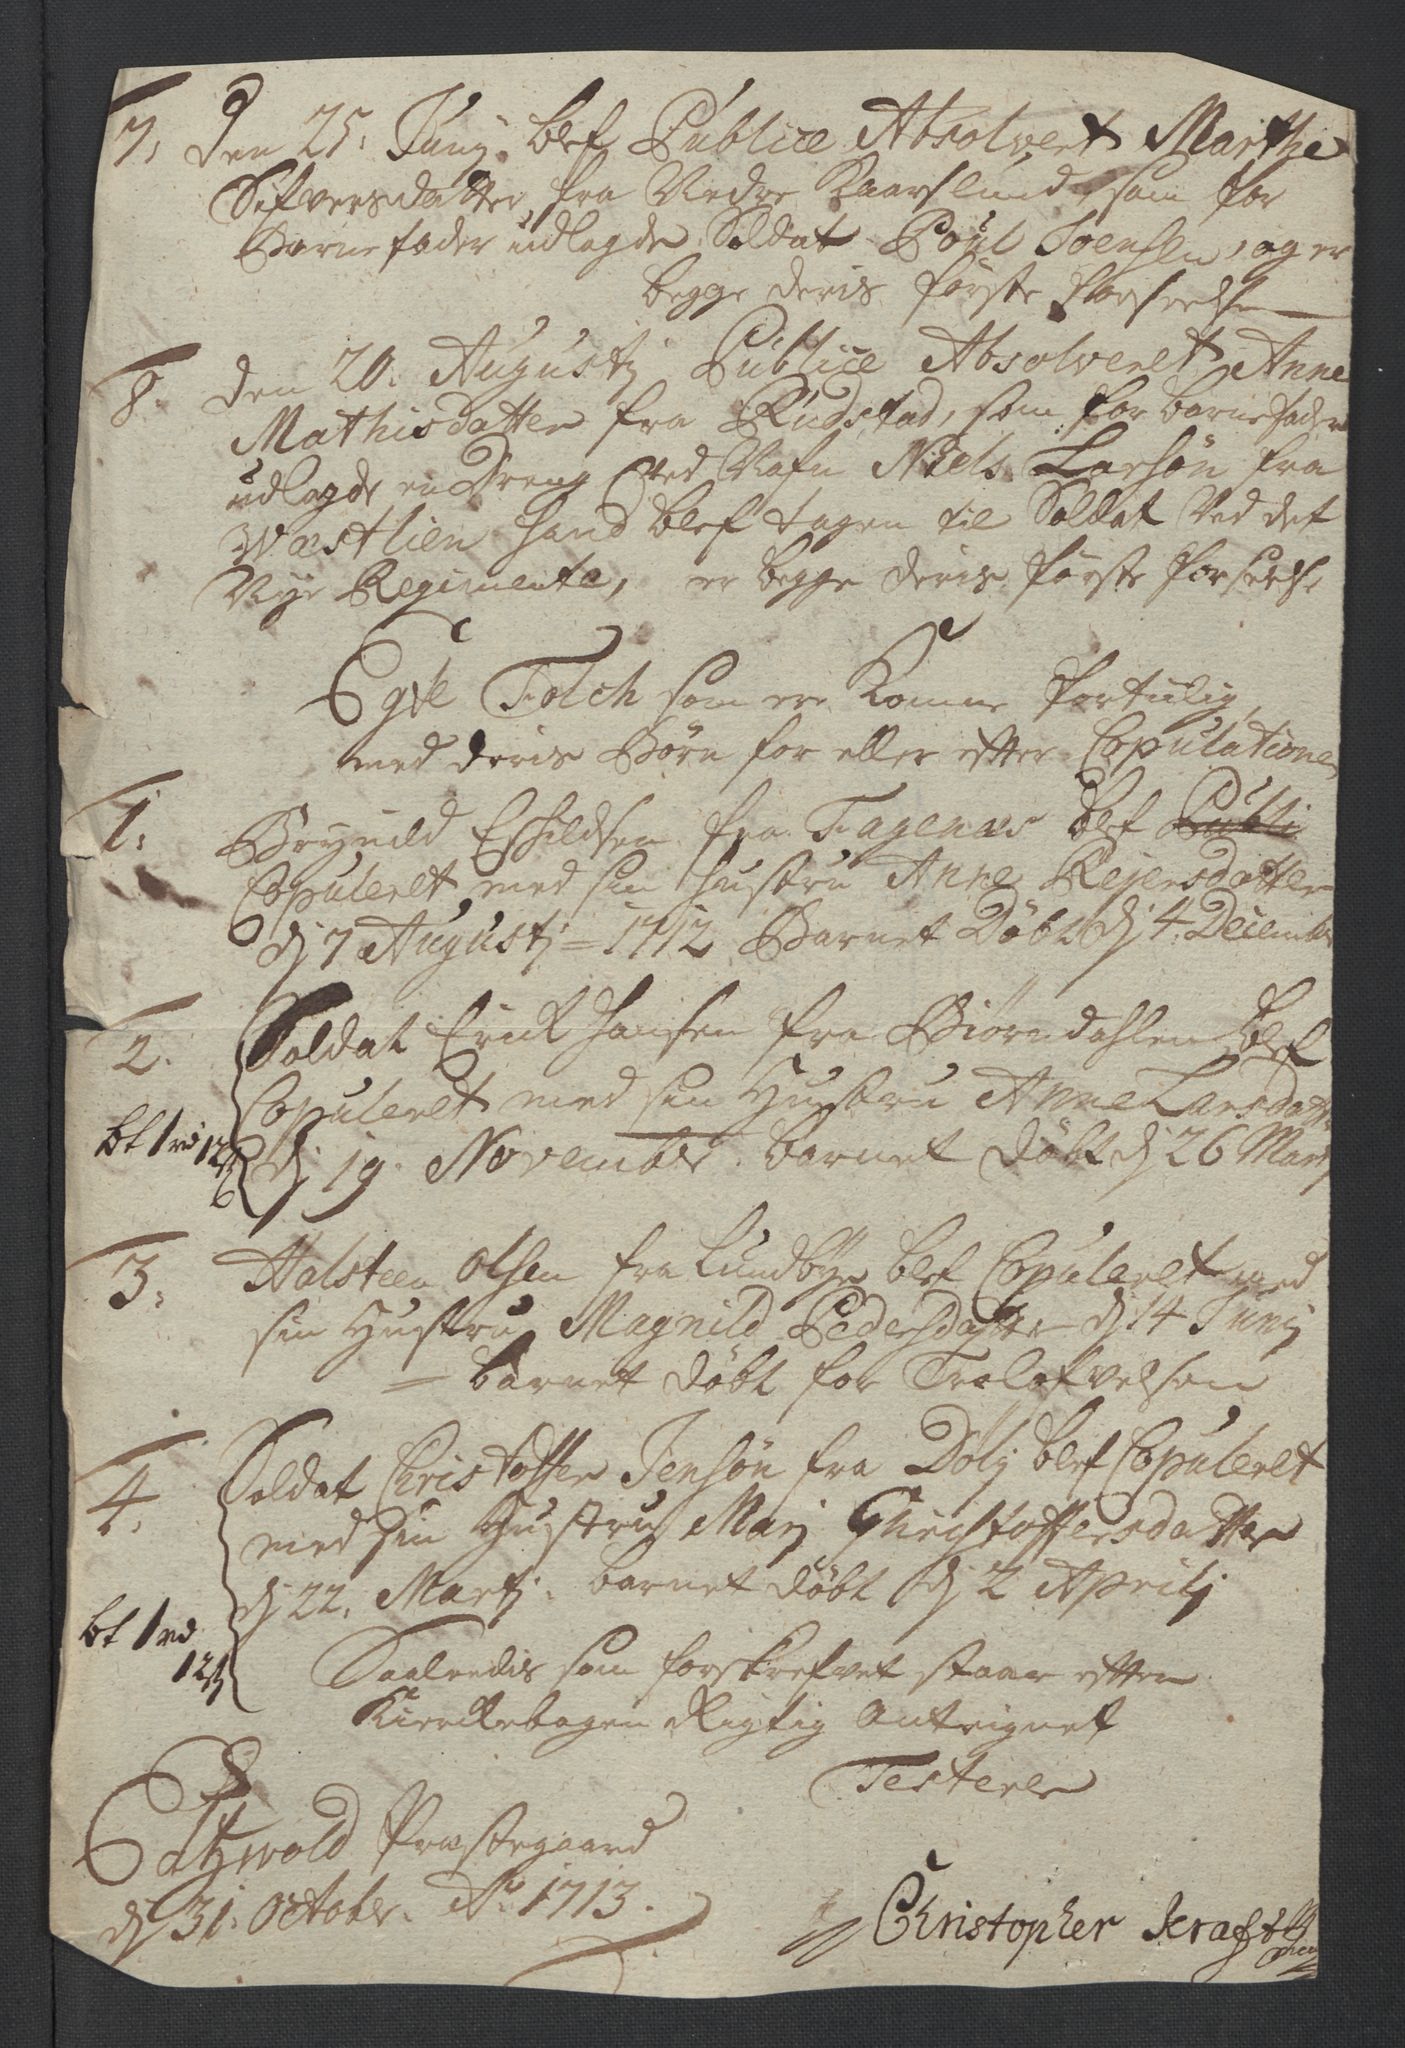 7, den 25. Junij blef Publice Absolvert Marthe
Sifversdatter fra Nedre Kaarslund, som for
Barnefader udlagde Soldat Poul Joensen, og er
begge deris første forseelse
8. den 20. Augustj Publice Absolveret Anne
Mathisdatter fra Rudstad, som for barnefader
udlagde en dreng ved Nafn Niels Larsøn fra
Wæstlien hand blef tagen til Soldat ved det
Nye Regimente, er begge deris første forseelse
Egte Folch som ere Komne fortilig,
med deris Børn for eller efter Copulationen
1. Brynild Eskildsen fra Fagenæs blef Publi
Copuleret med sin hustru Anne Rejersdatter
dj 7 Augustj = 1712 Barnet Døbt dj 4. December
2. Soldat Erick Hansen fra Biørndahlen blef
Copuleret med sin Hustru Anne Larsdatter
bt 1 rd 12 s dj 19. November. barnet døbt dj 26 Martj
3. Halsteen Olsen fra Lundbye blef Copuleret med
sin Hustru Magnild Pedersdatter dj 14 Junij
= barnet døbt for Trolofvelsen
4. Soldat Christoffer Jensøn fra Dølj blef Copuleret
med sin Hustru Marj Christoffersdatter
dj 22. Martj. barnet døbt dj 2 Aprilj
bt 1 rd
12 s
Saaledis som forskrefvet staar efter
Kierckebogen Rigtig Anteignet
Testerer
Eidtzwold Præstegaard
dj 31. October. Ao 1713.
Christopher Kraft